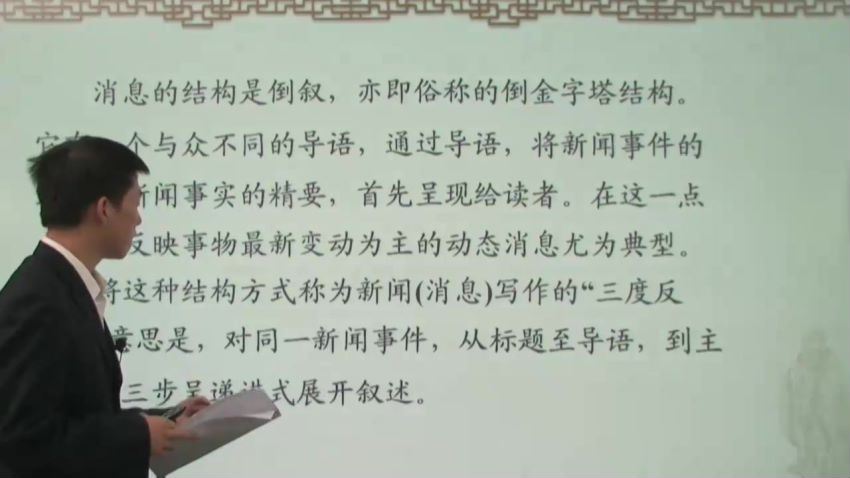 消息的结构是倒叙，亦即俗称的倒金字塔结构。
个与众不同的导语，通过导语，将新闻事件的
新闻事实的精要，首先呈现给读者。在这一点
反映事物最新变动为主的动态消息尤为典型。
将这种结构方式称为新闻(消息)写作的“三度反
意思是，对同一新闻事件，从标题至导语，到主
三步呈递进式展开叙述。